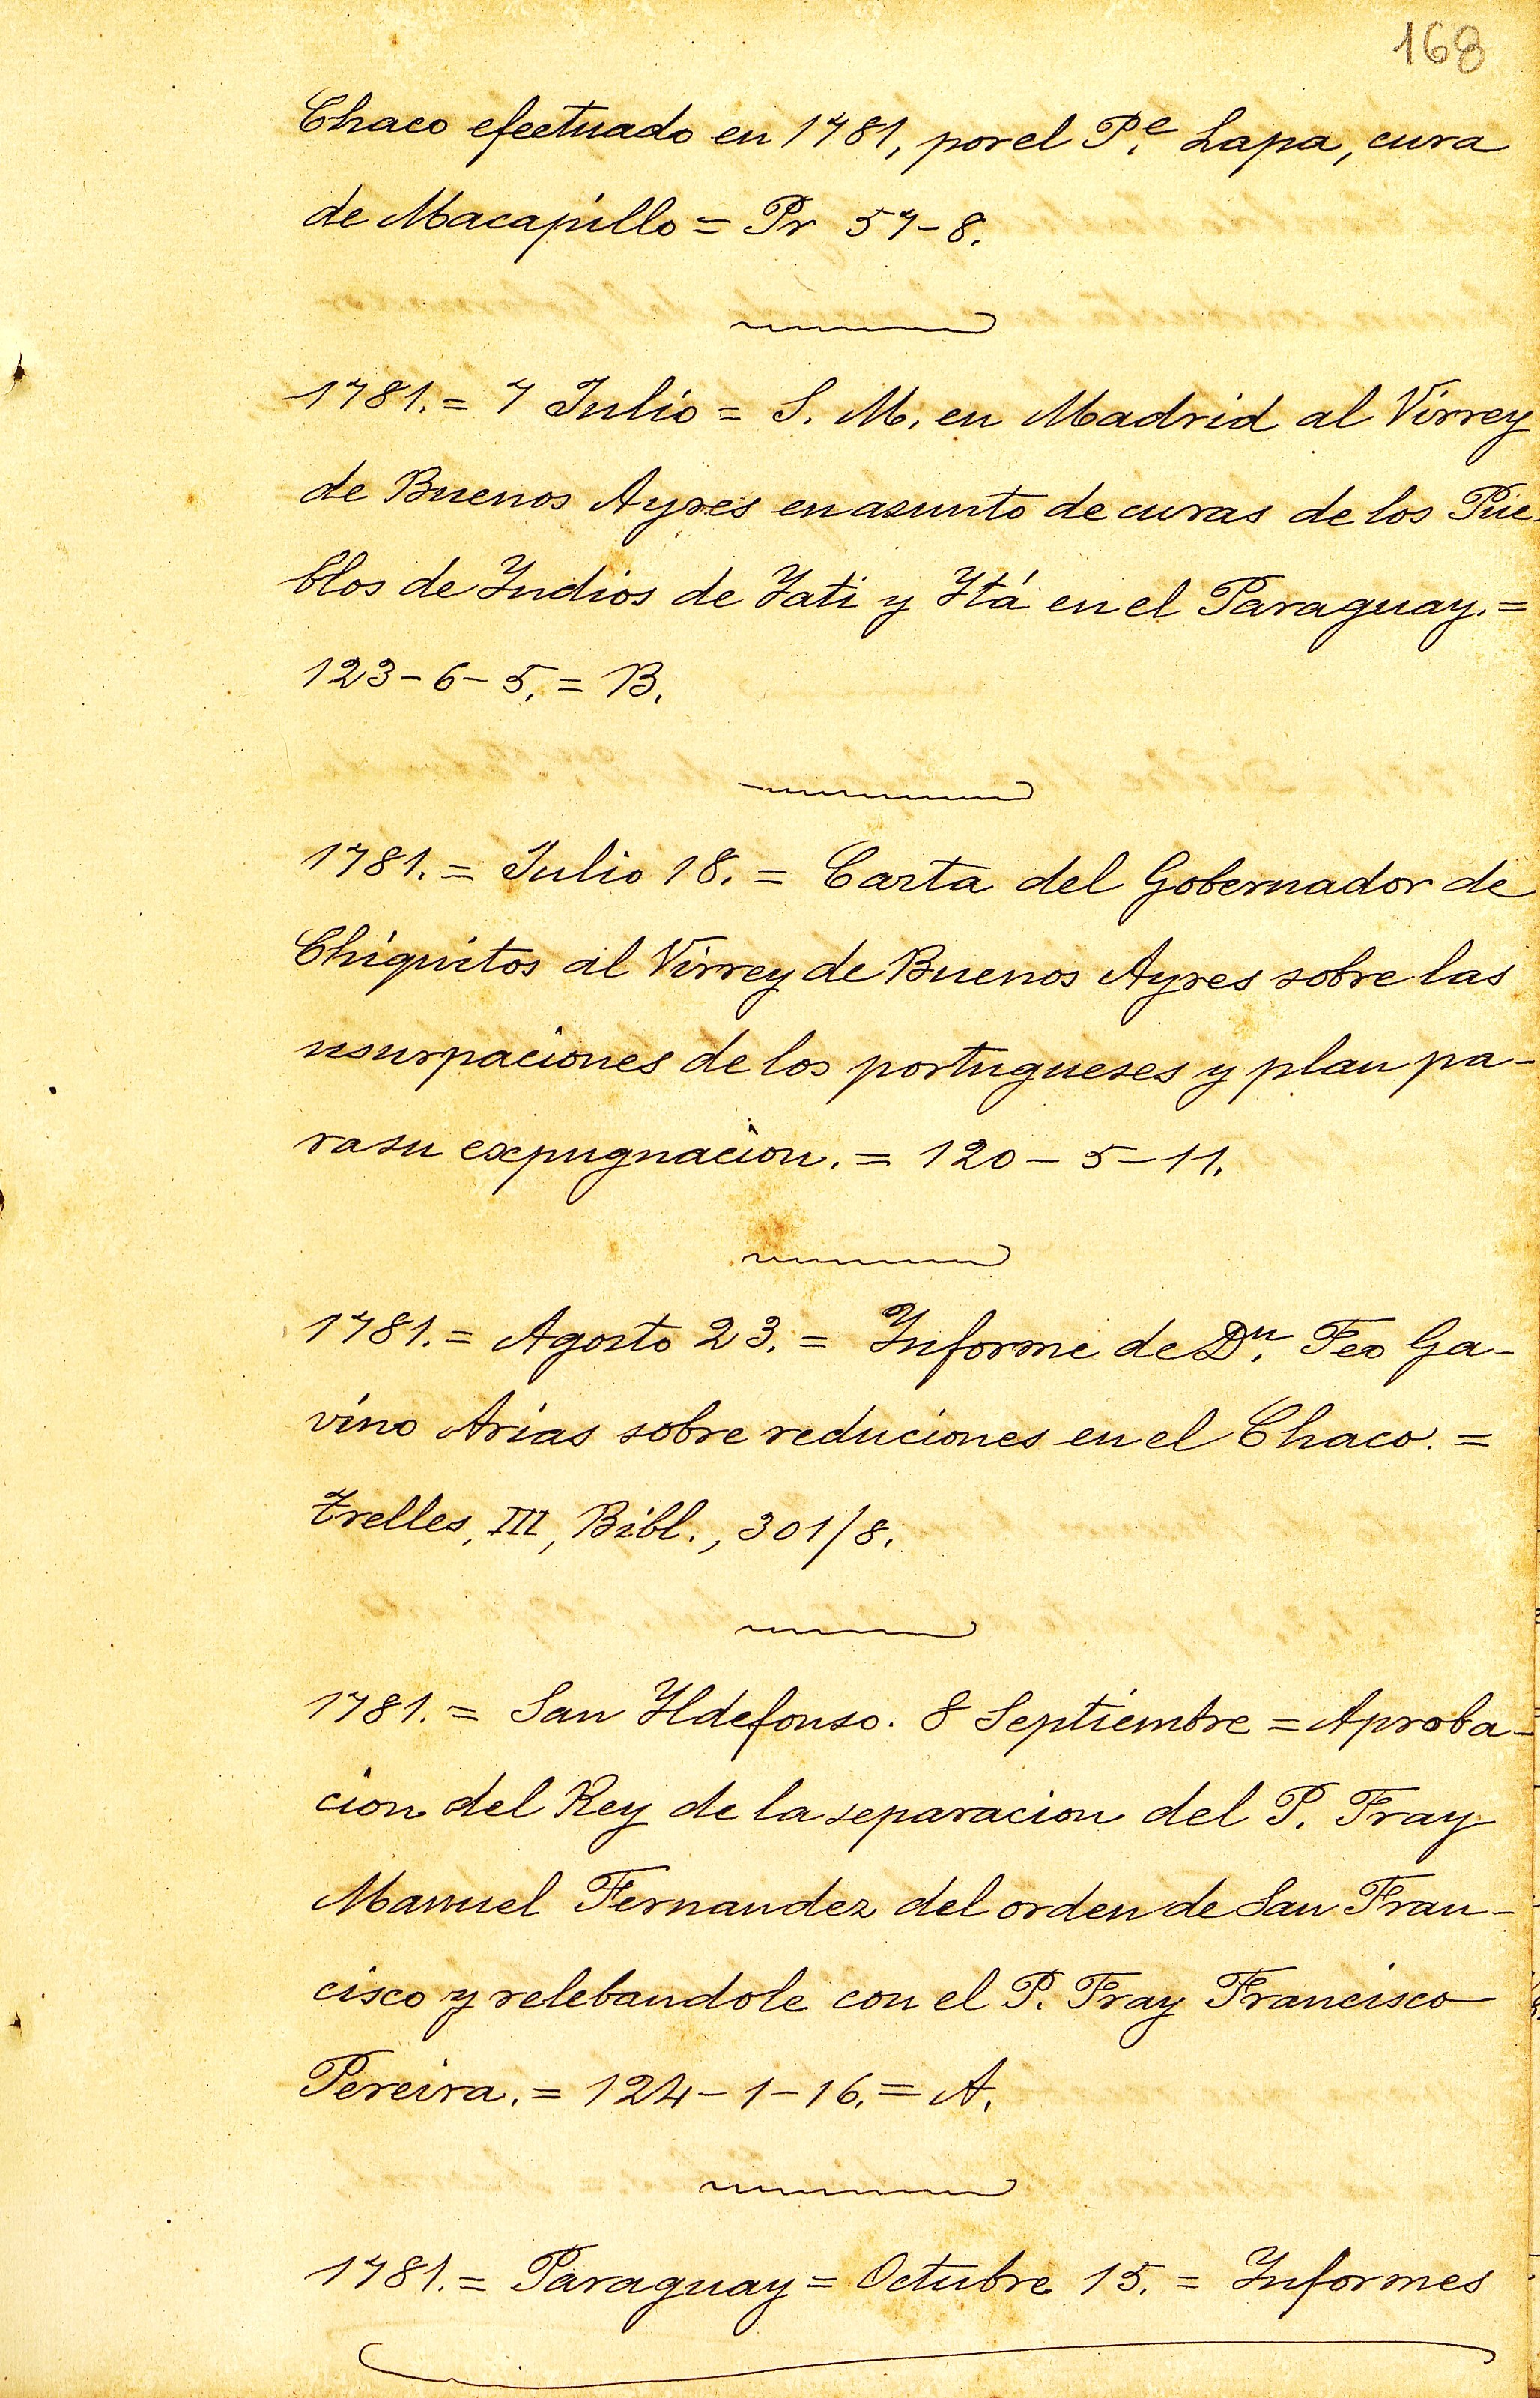 168
Chaco efectuado en 1781, por el P.e Lapa, cura
de Macapillo = Pr 57-8.
1781. = 7 Julio = S. M. en Madrid al Virrey
de Buenos Ayres en asunto de curas de los Pue-
blos de Indios de Yati y Itá en el Paraguay. =
123-6-5. = B.
1781. = Julio 18. = Carta del Gobernador de
Chiquitos al Virrey de Buenos Ayres sobre las
usurpaciones de los portugueses y plan pa-
ra su expugnacion. = 120-5-11.
1781. = Agosto 23. = Informe de Dn. Fco Ga-
vino Arias sobre reduciones en el Chaco. =
Trelles, III, Bibl., 301/8.
1781. = San Ildefonso. 8 Septiembre = Aproba-
cion del Rey de la separacion del P. Fray
Manuel Fernandez del orden de San Fran-
cisco y relebandole con el P. Fray Francisco
Pereira. = 124-1-16. = A.
1781. = Paraguay = Octubre 15. = Informes